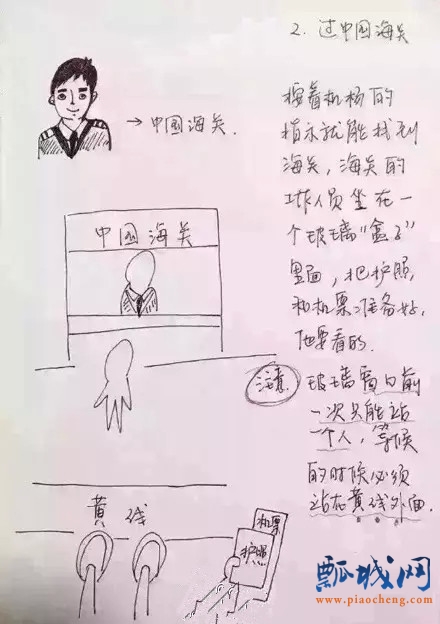 2. 过中国海关
→中国海关.
按着机场的
指示就能找到
海关，海关的
工作人员坐在一
个玻璃“盒子”
里面，把护照,
和机票准备好,
他要看的.
中国海关
注意: 玻璃窗口前
一次只能站
一个人，等候
的时候必须
站在黄线外面.
黄线
机票
护照
瓢城网
www.piaocheng.com